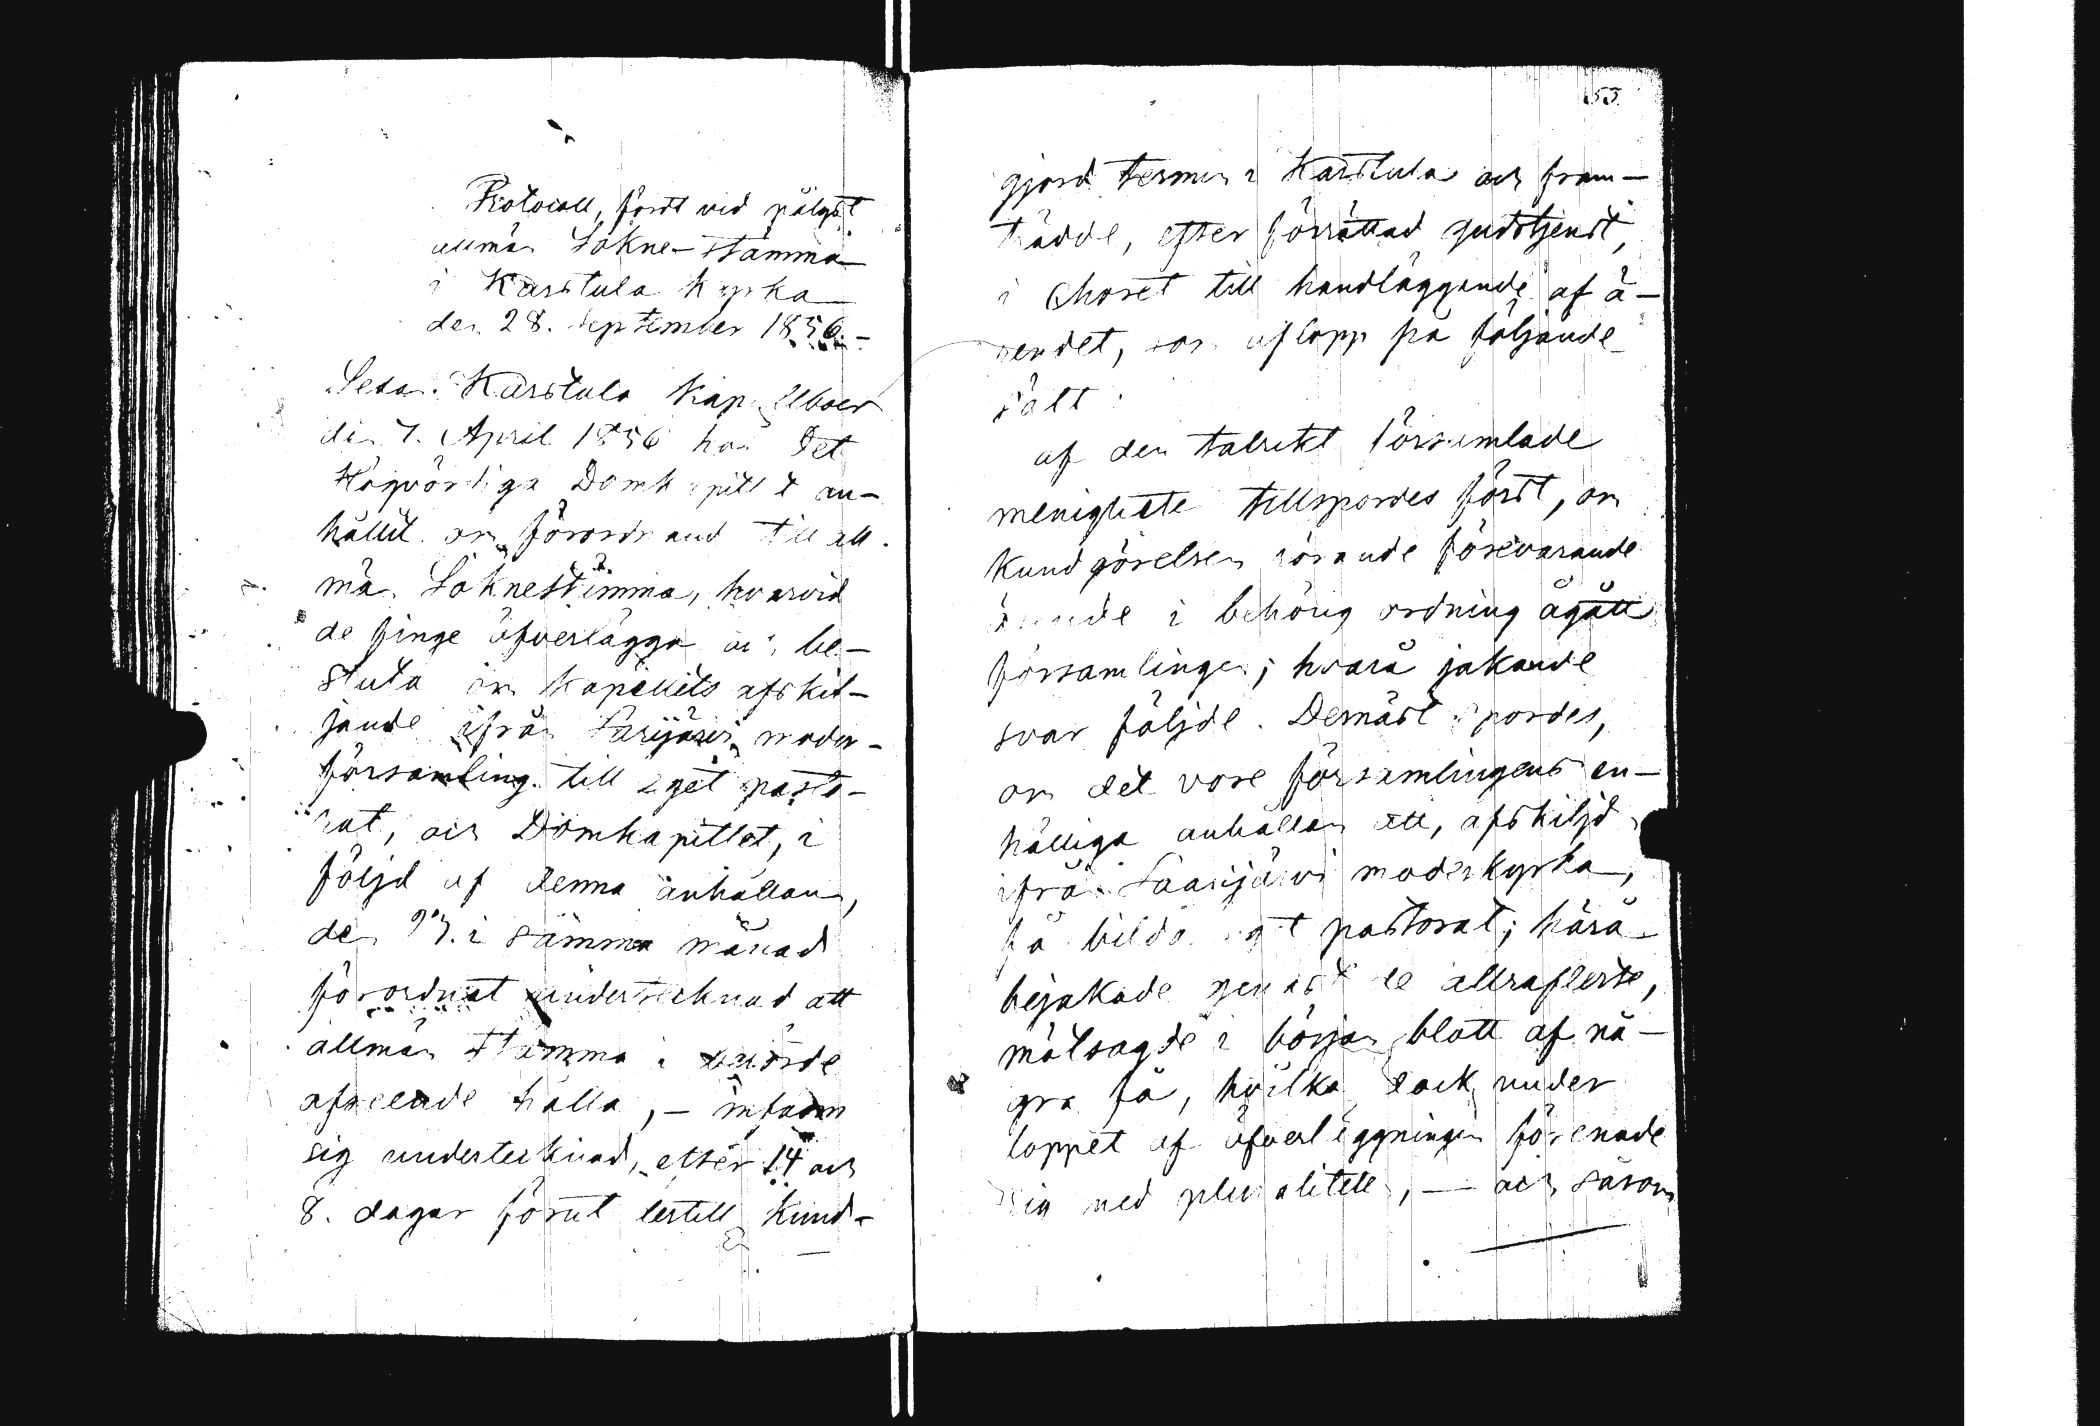 Protocoll, fördt vid pålyst
allmän Sokne-stämma
i Karstula kyrka
den 28. September 1856. -
Sedan Karstula Kapellboer
den 7. April 1856 hos Det
Högvördiga Domkapitlet an-
hållit om förordnand till all-
män Soknestämma, hvarvid
de finge öfverlägga och be-
sluta om kapellets afskil-
jande ifrån Sarijärvi moder-
församling till eget pasto-
rat, och Domkapitlet, i
följd af denna anhållan,
den i samma månad
förordnat undertecknad att
allmän stämma i
afseende hålla, — infann
sig undertecknad, efter 14 och
8. dagar förut kund-
53.
gjord termin i Karstula och fram-
trädde, efter förrättad gudstjenst,
i choret till handläggande af ä-
rendet, som aflopp på följande
sätt:
af den talrikt församlade
menigheten tillspordes först, om
kundgörelsen rörande förevarande
ärende i behörig ordning ägått
församlingen; hvarå jakande
svar följde. Dernäst spordes,
om det vore församlingens en-
hälliga anhållan att, afskiljd
ifrån Saarijärvi moderkyrka,
få bilda eget pastorat; härå
bejakade genast de allraflesta,
motsagde i början blott af nå-
gra få, hvilka dock under
loppet af öfverläggningen förenade
sig med pluraliteten, — och såsom